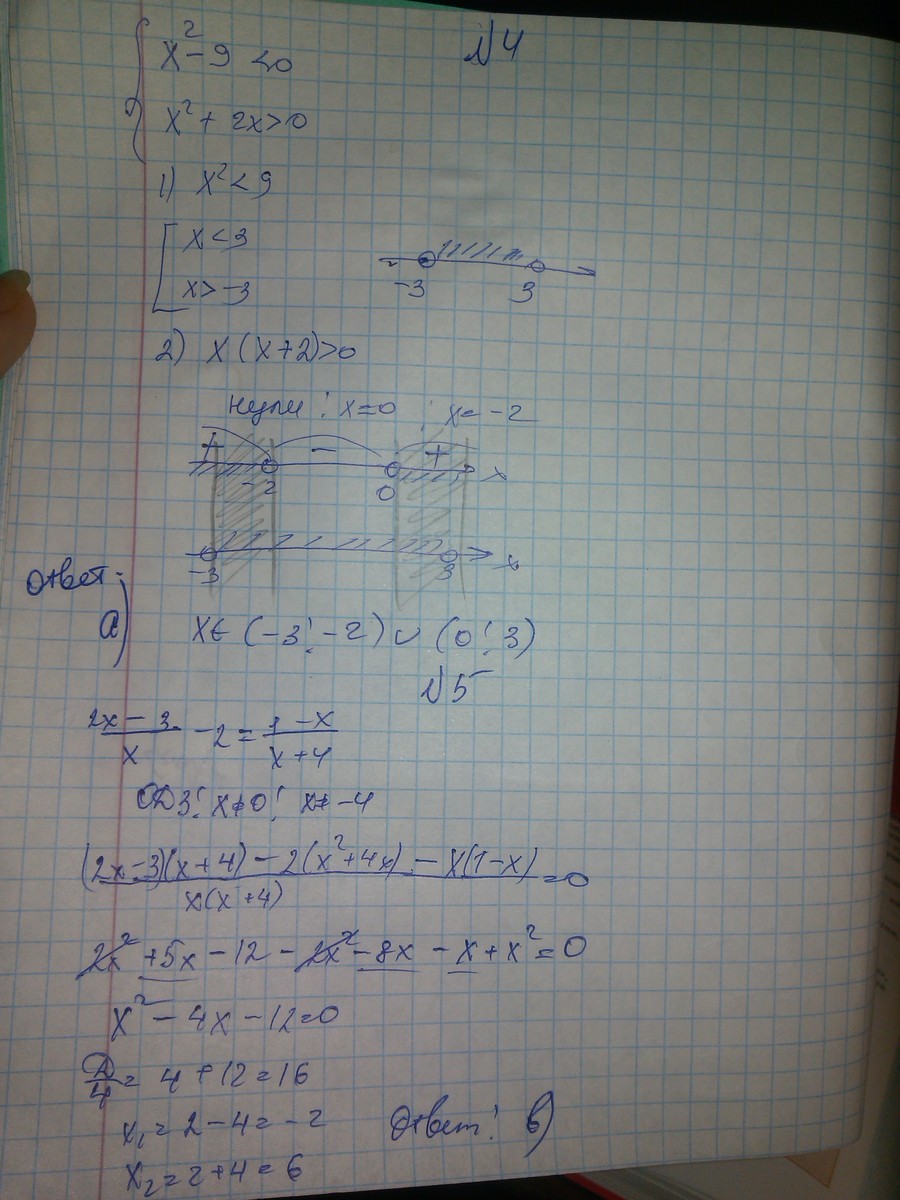 №4
x² - 9 < 0
x² + 2x > 0
1) x² < 9
x < 3
x > -3
-3 3
2) x (x+2) > 0
нули: x=0; x= -2
+ - +
-2 0 x
-3 3 x
Ответ:
а) x ∈ (-3; -2) ∪ (0; 3)
№5
(2x - 3)/x - 2 = (1 - x)/(x+4)
ОДЗ: x≠0; x≠ -4
((2x-3)(x+4) - 2(x²+4x) - x(1-x))/(x(x+4)) = 0
2x² + 5x - 12 - 2x² - 8x - x + x² = 0
x² - 4x - 12 = 0
D/4 = 4 + 12 = 16
x₁ = 2 - 4 = -2
Ответ: в)
x₂ = 2 + 4 = 6